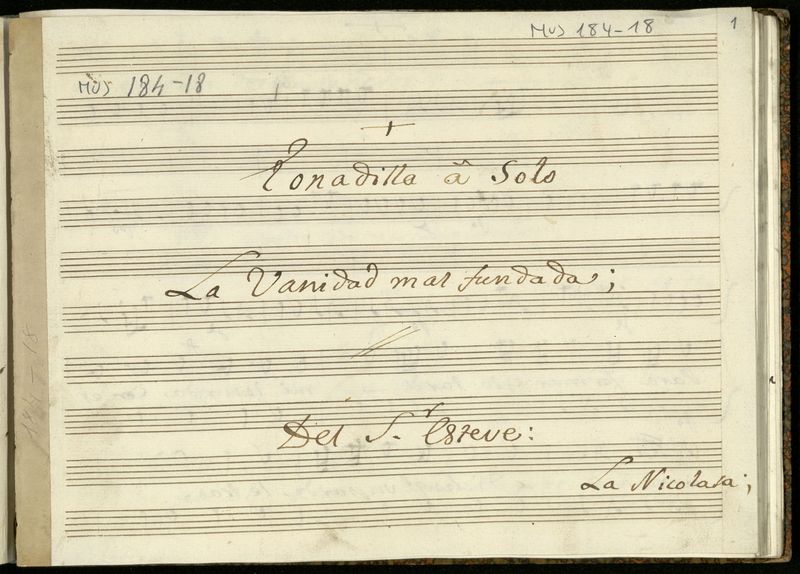 MUS 184-18
1
MUS 184-18
+
Tonadilla â Solo
La Vanidad mal fundada;
Del S.r Esteve:
La Nicolasa;
184-18